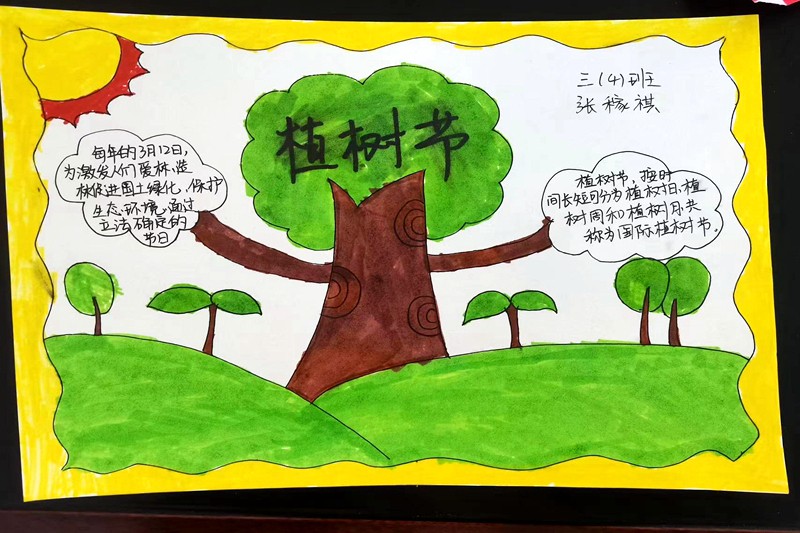 三(4)班
张稼祺
植树节
每年的3月12日,
为激发人们爱林、造
林促进国土绿化,保护
生态环境,通过
立法确定的
节日
植树节,按时
间长短可分为植树日、植
树周和植树月共
称为国际植树节.